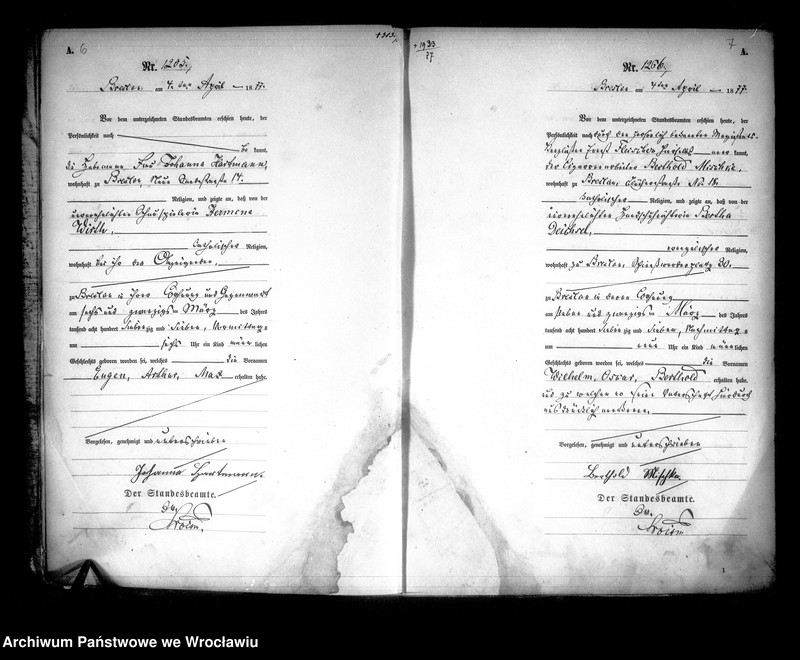 A. 6
+ 313.
Nr. 1265.
Breslau am 4. ten April 1877.
Vor dem unterzeichneten Standesbeamten erschien heute, der
Persönlichkeit nach
be kannt,
die Hebamme Frau Johanna Hartmann,
wohnhaft zu Breslau,
Religion, und zeigte an, daß von der
unverehelichten Schauspielerin Hermine
Wirth,
katholischer Religion,
wohnhaft bei ihr der Anzeigenden,
zu Breslau in ihrer Wohnung und Gegenwart
am sechs und zwanzigsten März des Jahres
tausend acht hundert siebenzig und sieben, Vormittags
um sechs Uhr ein Kind männlichen
Geschlechts geboren worden sei, welches die Vornamen
Eugen, Arthur, Max erhalten habe.
Vorgelesen, genehmigt und unterschrieben
Johanna Hartmann.
Der Standesbeamte.
+ 1933
77
7 A.
Nr. 1266.
Breslau am 4 ten April 1877
Vor dem unterzeichneten Standesbeamten erschien heute, der
Persönlichkeit nach durch den
kannt,
der Cigarrenarbeiter Berthold Mischke,
wohnhaft zu Breslau, No. 18.
katholischer Religion, und zeigte an, daß von der
unverehelichten Handschuhnähterin Bertha
Deichsel,
evangelischer Religion,
wohnhaft zu Breslau, Schießwerderplatz 30.
zu Breslau in deren Wohnung
am sieben und zwanzigsten März des Jahres
tausend acht hundert siebenzig und sieben, Nachmittags
um neun Uhr ein Kind männlichen
Geschlechts geboren worden sei, welches die Vornamen
Wilhelm, Oscar, Berthold erhalten habe.
und zu welchem er seine Vaterschaft hierdurch
ausdrücklich anerkenne.
Vorgelesen, genehmigt und unterschrieben
Berthold Mischke
Der Standesbeamte.
1
Archiwum Państwowe we Wrocławiu